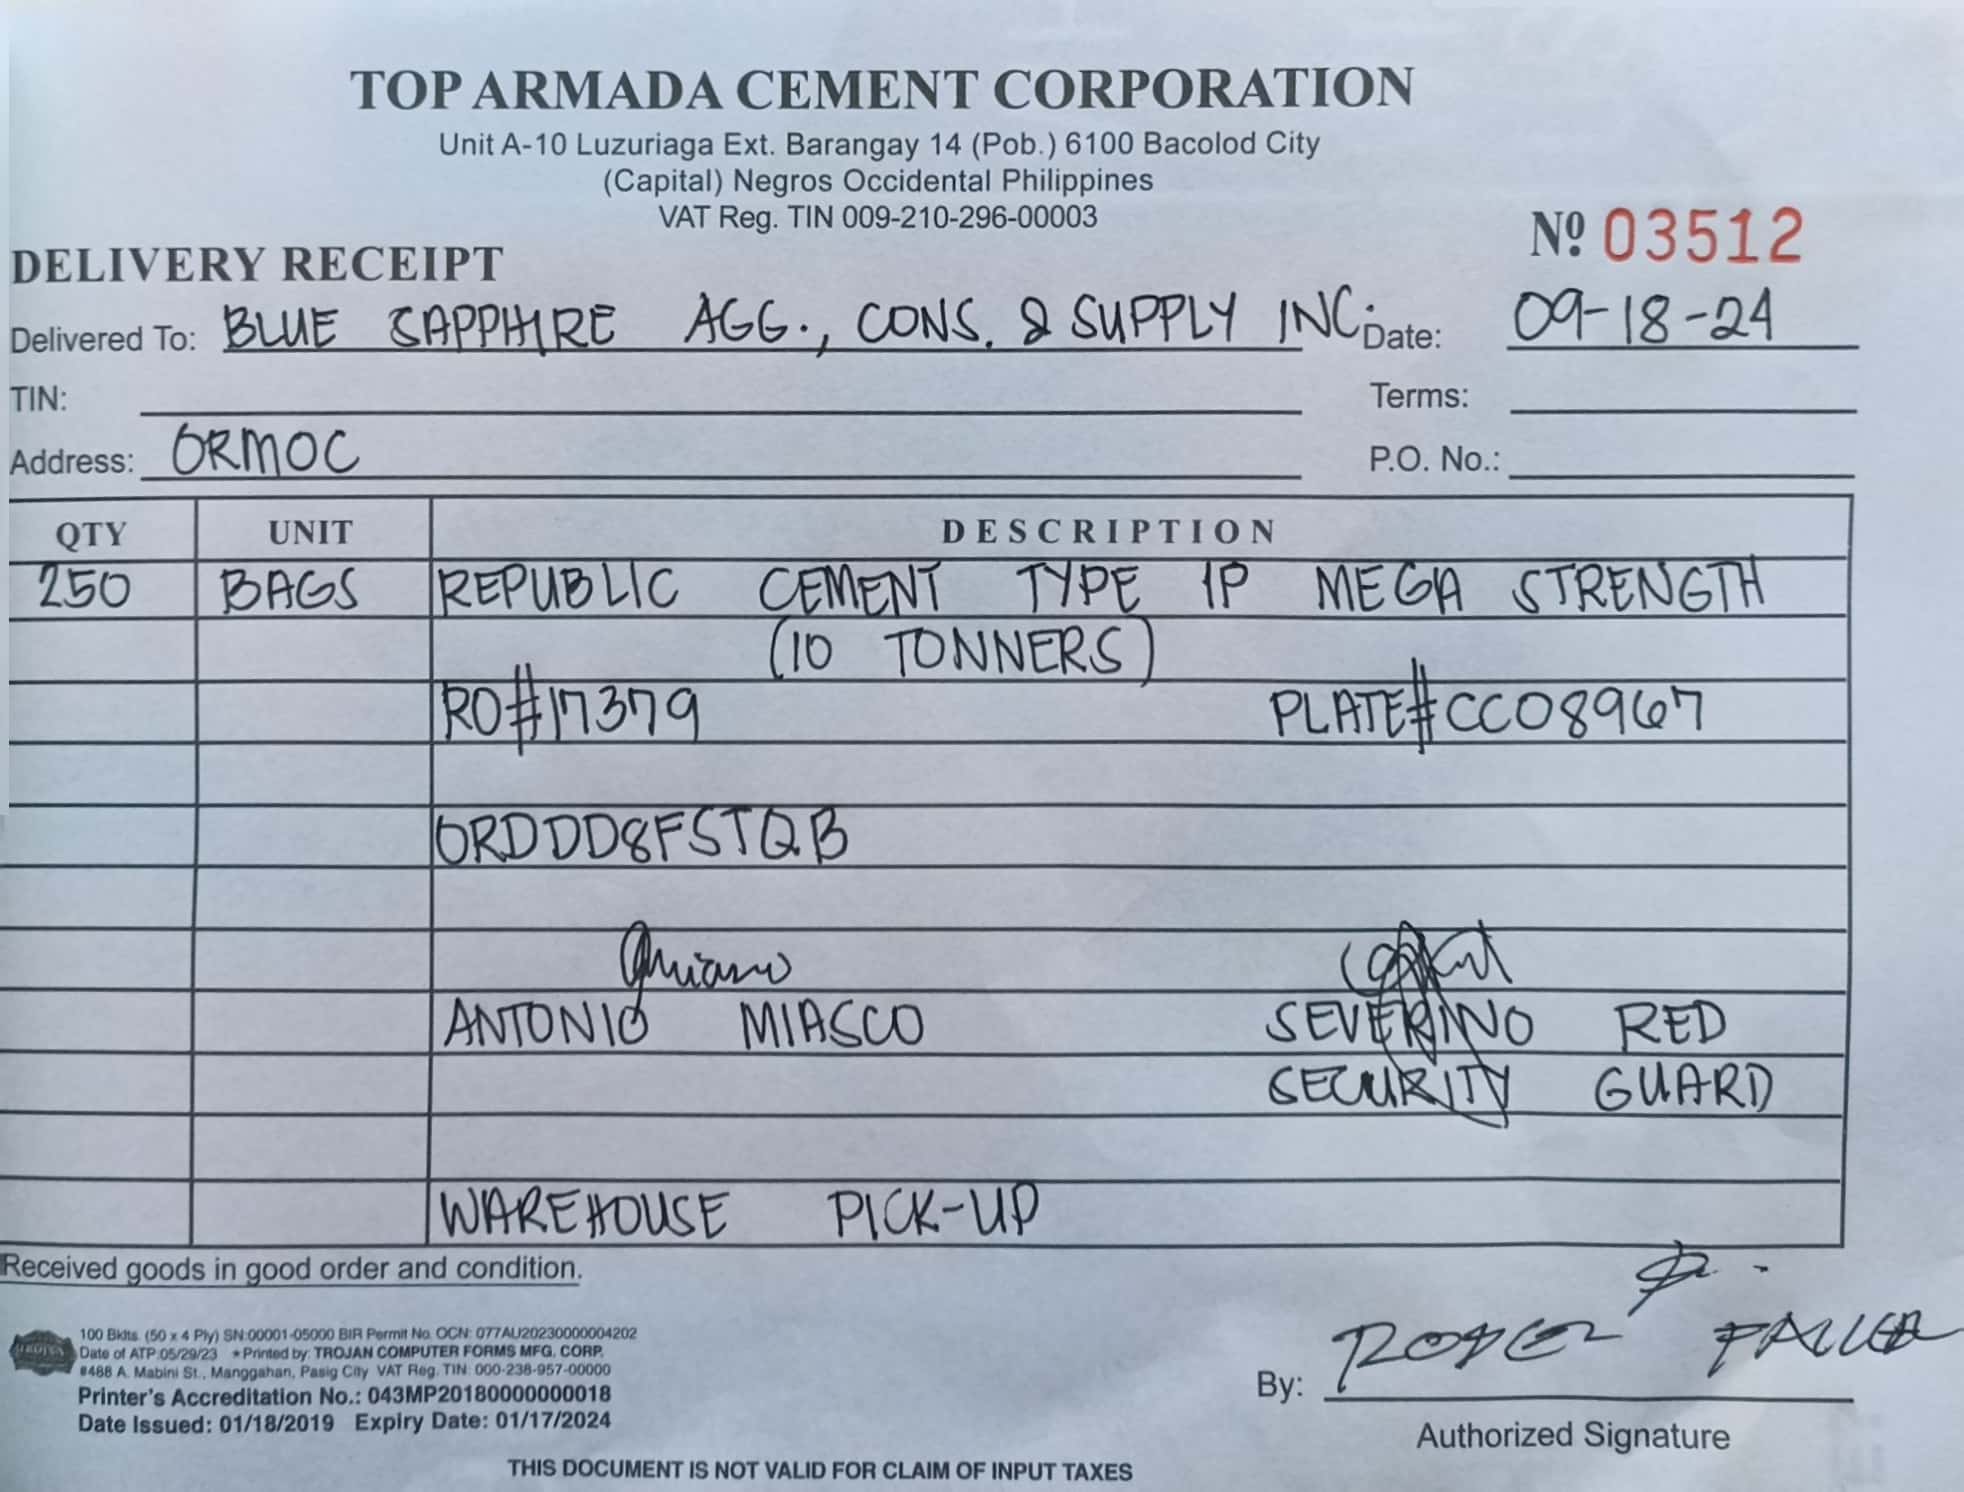 TOP ARMADA CEMENT CORPORATION
Unit A-10 Luzuriaga Ext. Barangay 14 (Pob.) 6100 Bacolod City
(Capital) Negros Occidental Philippines
VAT Reg. TIN 009-210-296-00003
Nº 03512
DELIVERY RECEIPT
Delivered To: BLUE SAPPHIRE AGG., CONS. & SUPPLY INC. Date: 09-18-24
TIN: Terms:
Address: ORMOC P.O. No.:
QTY UNIT DESCRIPTION
250 BAGS REPUBLIC CEMENT TYPE 1P MEGA STRENGTH
(10 TONNERS)
RO#17379 PLATE#CCO8967
ORDDDD8FSTQB
ANTONIO MIASCO SEVERINO RED
SECURITY GUARD
WAREHOUSE PICK-UP
Received goods in good order and condition.
100 Bklts. (50 x 4 Ply) SN:00001-05000 BIR Permit No. OCN: 077AU20230000004202
Date of ATP:05/29/23 *Printed by: TROJAN COMPUTER FORMS MFG. CORP.
#488 A. Mabini St., Manggahan, Pasig City VAT Reg. TIN: 000-238-957-00000
Printer's Accreditation No.: 043MP20180000000018
Date Issued: 01/18/2019 Expiry Date: 01/17/2024
By:
Authorized Signature
THIS DOCUMENT IS NOT VALID FOR CLAIM OF INPUT TAXES